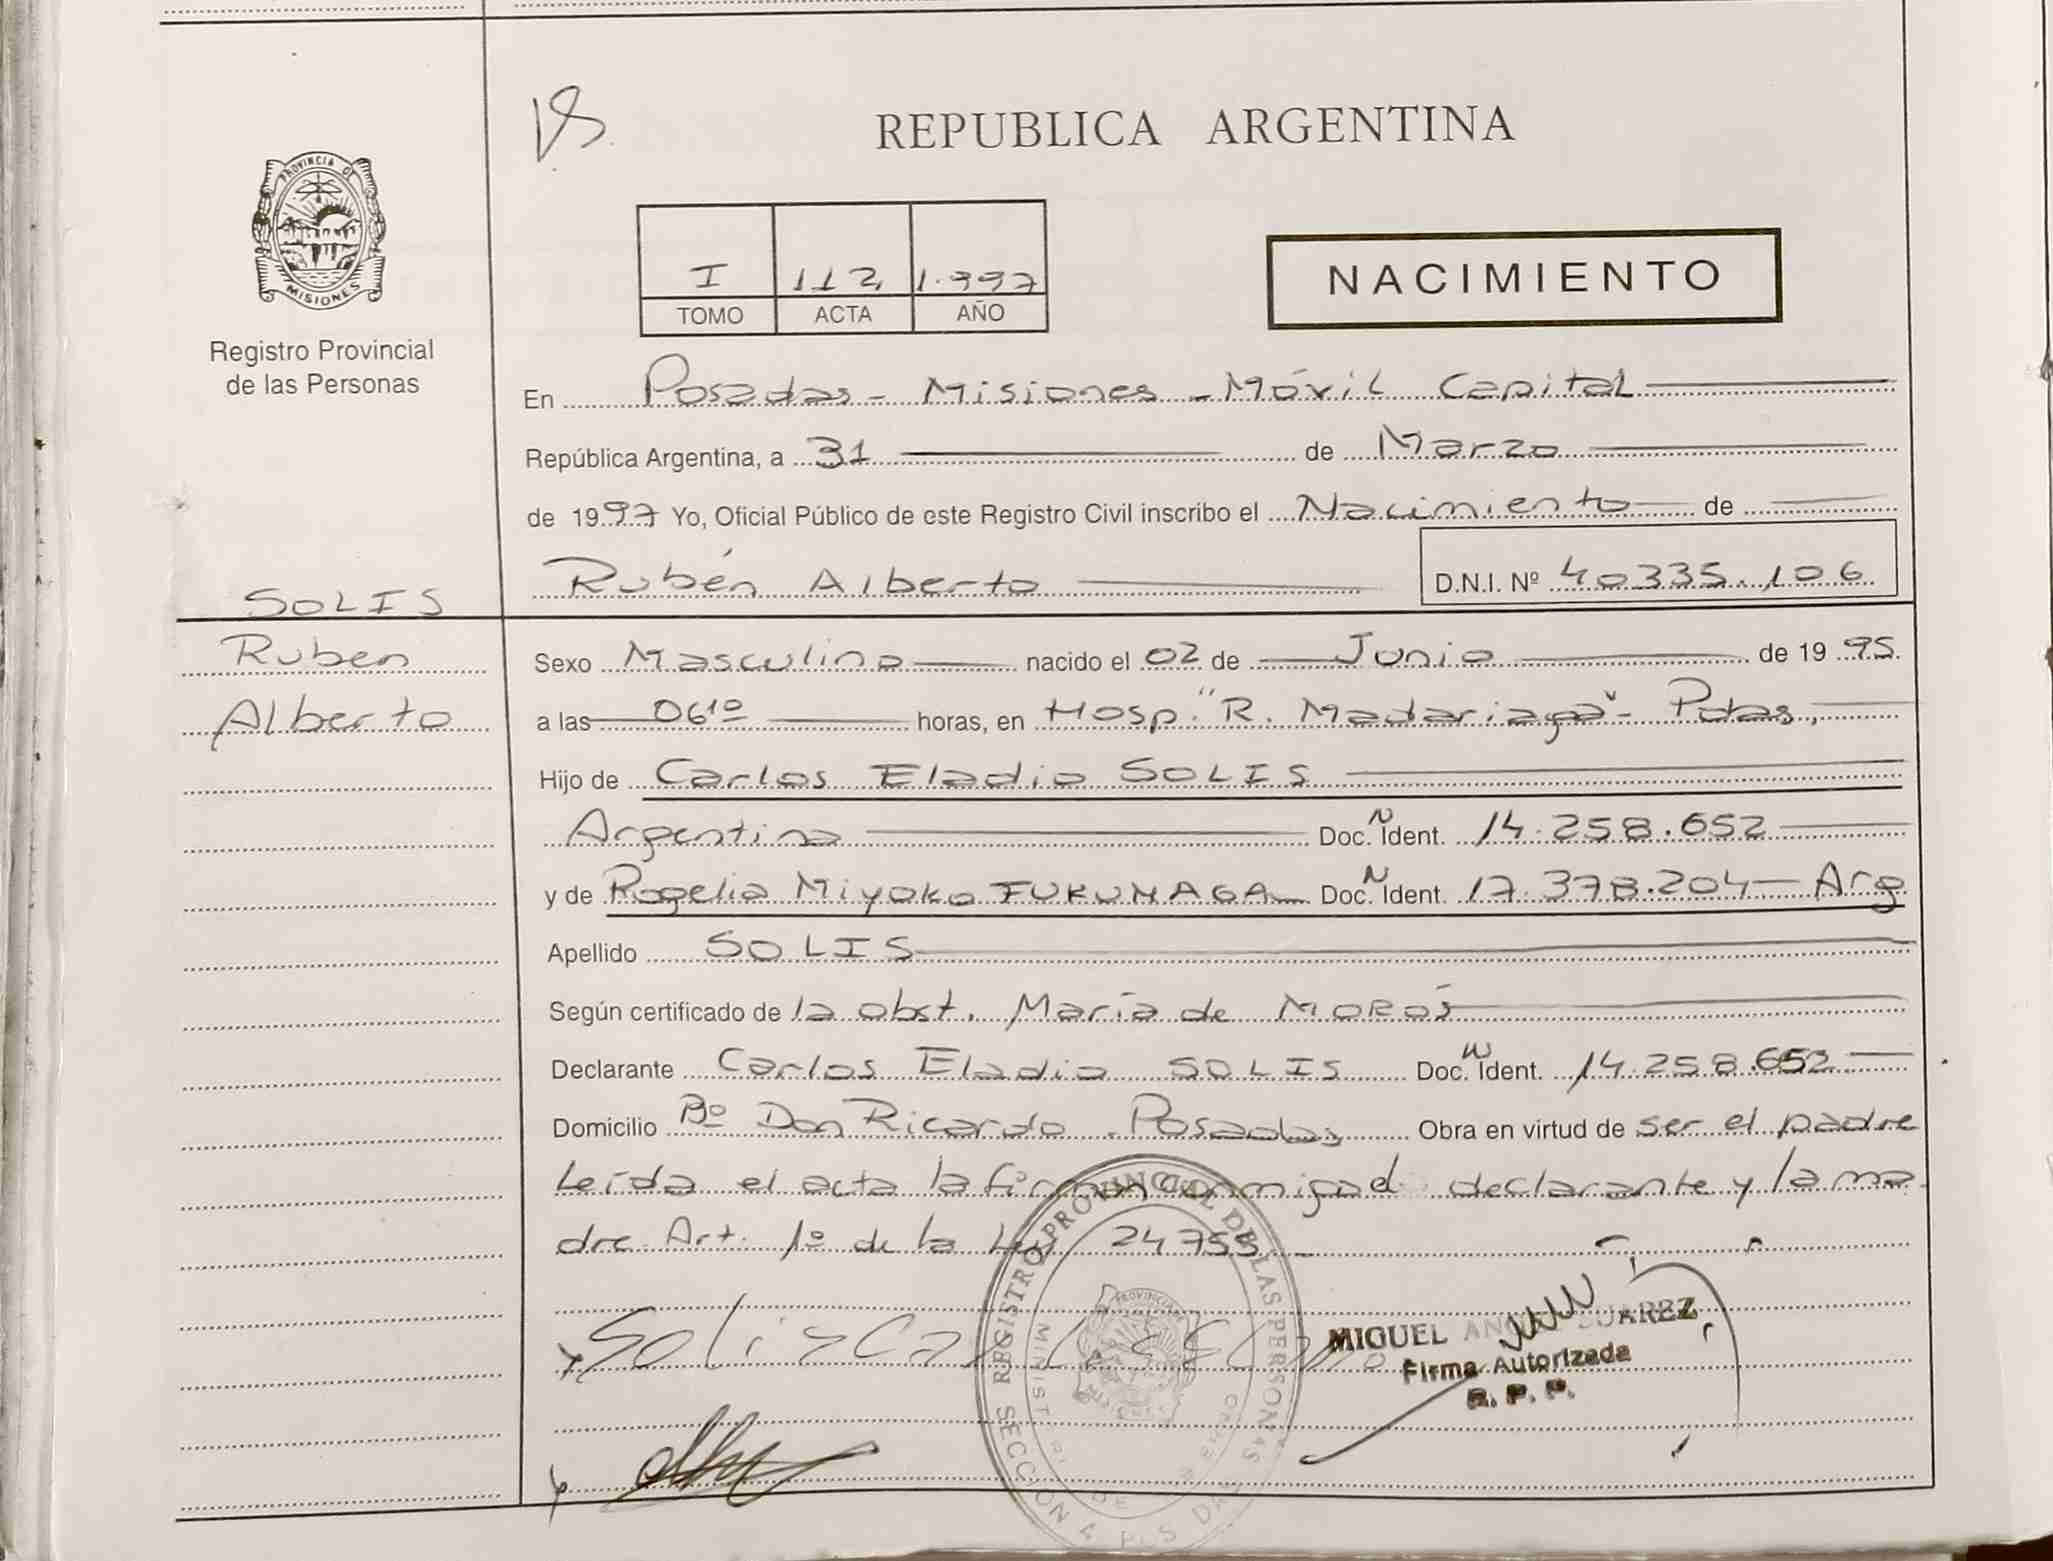 PROVINCIA DE
MISIONES
Registro Provincial
de las Personas
SOLIS
Ruben
Alberto
REPUBLICA ARGENTINA
I 112 1.997
TOMO ACTA AÑO
NACIMIENTO
En Posadas - Misiones - Móvil Capital
República Argentina, a 31 de Marzo
de 1997 Yo, Oficial Público de este Registro Civil inscribo el Nacimiento de
Rubén Alberto D.N.I. Nº 40335.106
Sexo Masculino nacido el 02 de Junio de 1995.
a las 06¹⁰ horas, en Hosp. "R. Madariaga" - Pdas,
Hijo de Carlos Eladio SOLIS
Argentino Doc. N Ident. 14.258.652
y de Rogelia Miyoko FUKUNAGA Doc. N Ident. 17.378.204 - Arg
Apellido SOLIS
Según certificado de la obst. María de MORÁS
Declarante Carlos Eladio SOLIS Doc. N Ident. 14.258.652
Domicilio Bº Don Ricardo - Posadas Obra en virtud de ser el padre
Leída el acta la firman conmigo el declarante y la ma-
dre Art. 1º de la Ley 24755 -
Solis Carlos
MIGUEL ANGEL SUAREZ
Firma Autorizada
R. P. P.
REGISTRO PROVINCIAL DE LAS PERSONAS
PROVINCIA